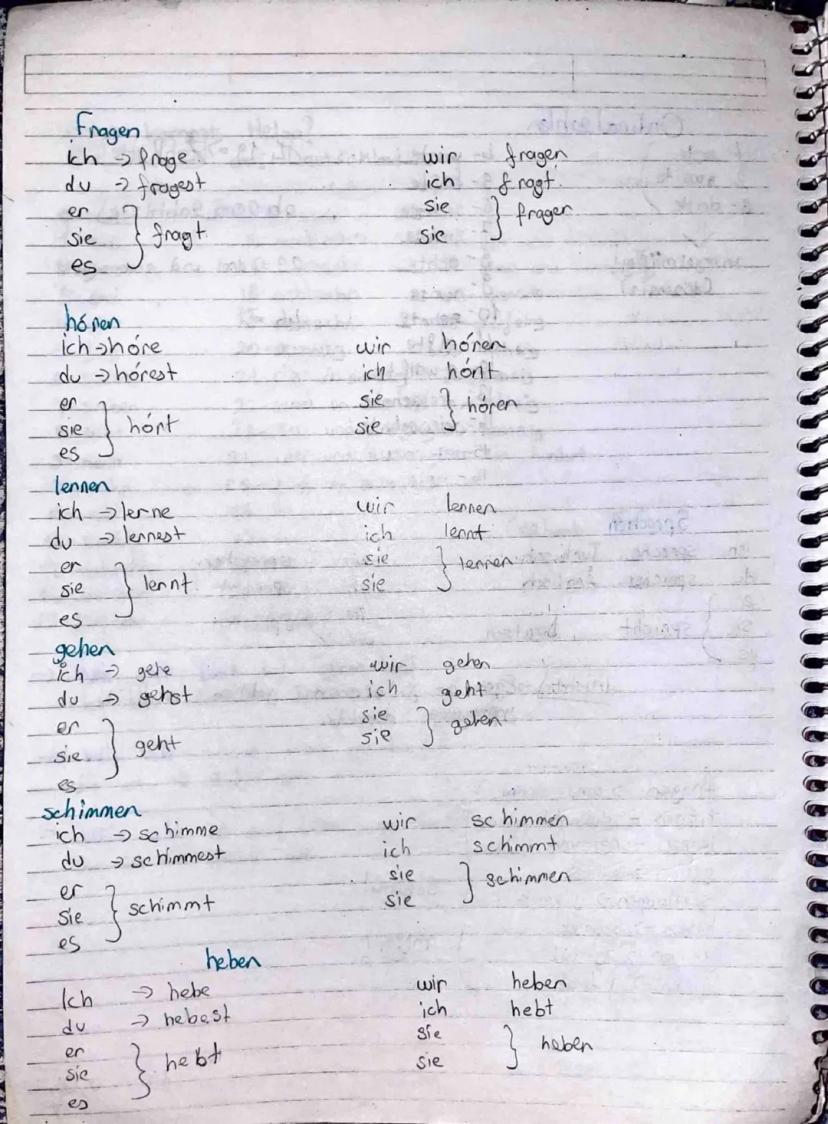 Fragen
ich → frage wir fragen
du → fragest ich fragt
er sie
sie } fragt sie } fragen
es
hónen
ich → hóre wir hóren
du → hórest ich hórt
er sie
sie } hórt sie } hóren
es
lennen
ich → lerne wir lennen
du → lennest ich lennt
er sie
sie } lennt sie } lennen
es
gehen
ich → gehe wir gehen
du → gehst ich geht
er sie
sie } geht sie } gehen
es
schimmen
ich → schimme wir schimmen
du → schimmest ich schimmt
er sie
sie } schimmt sie } schimmen
es
heben
Ich → hebe wir heben
du → hebest ich hebt
er sie
sie } hebt sie } heben
es